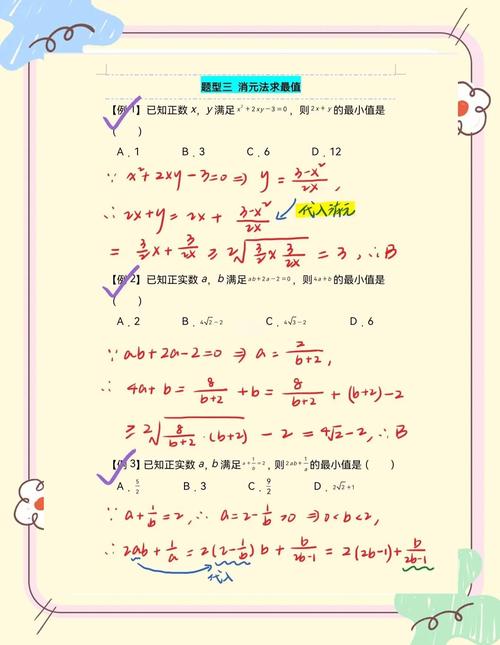 题型三 消元法求最值
【例 1】已知正数 x, y 满足 x²+2xy-3=0, 则 2x+y 的最小值是
( )
A. 1 B. 3 C. 6 D. 12
∵ x²+2xy-3=0 ⇒ y = (3-x²)/(2x),
∴ 2x+y = 2x + (3-x²)/(2x) 代入消元
= (3/2)x + 3/(2x) ≥ 2√((3/2)x · 3/(2x)) = 3, ∴B
【例 2】已知正实数 a, b 满足 ab+2a-2=0, 则 4a+b 的最小值是
( )
A. 2 B. 4√2-2 C. 4√3-2 D. 6
∵ ab+2a-2=0 ⇒ a = 2/(b+2),
∴ 4a+b = 8/(b+2) + b = 8/(b+2) + (b+2) - 2
≥ 2√(8/(b+2) · (b+2)) - 2 = 4√2-2, ∴B
【例 3】已知正实数 a, b 满足 a+1/b=2, 则 2ab+1/a 的最小值是 ( )
A. 5/2 B. 3 C. 9/2 D. 2√2+1
∵ a+1/b=2, ∴ a=2-1/b>0 ⇒ 0<b<2,
∴ 2ab+1/a = 2(2-1/b)b + b/(2b-1) = 2(2b-1) + b/(2b-1)
代入